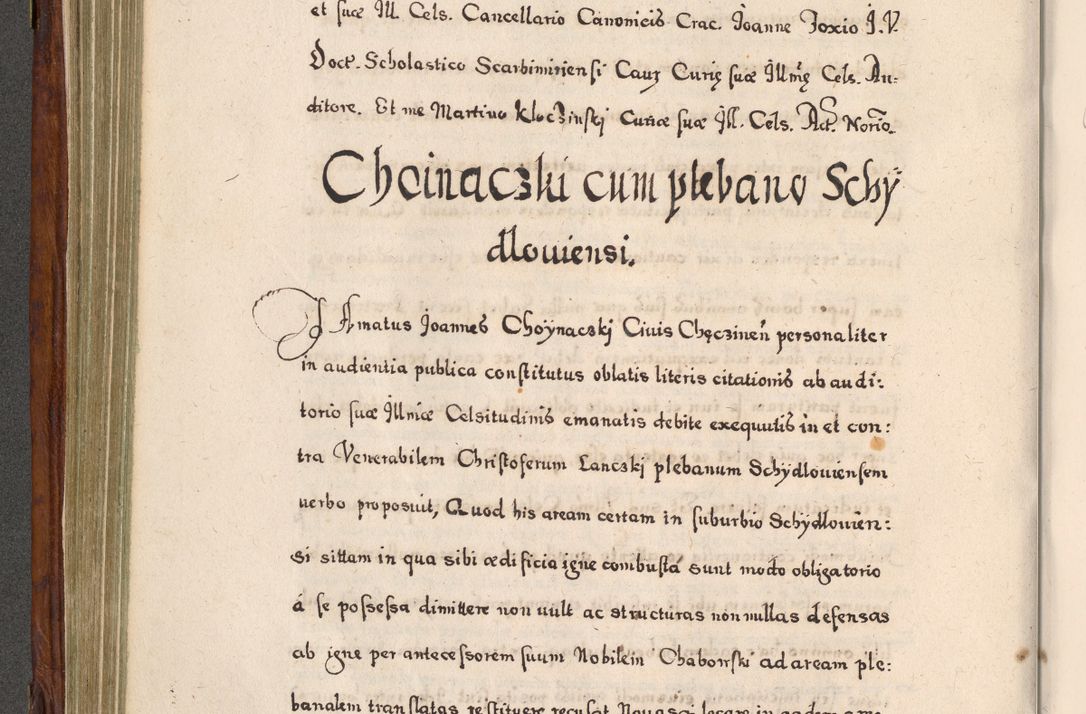 et suæ Ill. Cels. Cancellario Canonicis Crac. Joanne Foxio J. V.
Doct. Scholastico Scarbimiriensi Caus Curię suæ Illmę Cels. Au:
ditore. Et me Martino Kloczinskj Curiæ suæ Ill. Cels. Act. Norio.
Choinaczki cum plebano Schÿ
dlouiensi.
Amatus Joannes Choÿnaczkj Ciuis Chęczineń personaliter
in audientia publica constitutus oblatis literis citationis ab audi:
torio suæ Illmæ Celsitudinis emanatis debite exequutis in et con:
tra Venerabilem Christoferum Lanczkj plebanum Schÿdlouiensem
uerbo proposuit, Quod his aream certam in suburbio Schÿdlouien:
si sittam in qua sibi ædificia igne combusta sunt modo obligatorio
á se possessa dimittere non uult ac structuras nonnullas defensas
ab igne per antecessorem suum Nobilem Chaborski ad aream ple:
banalem translatas restituere recusat